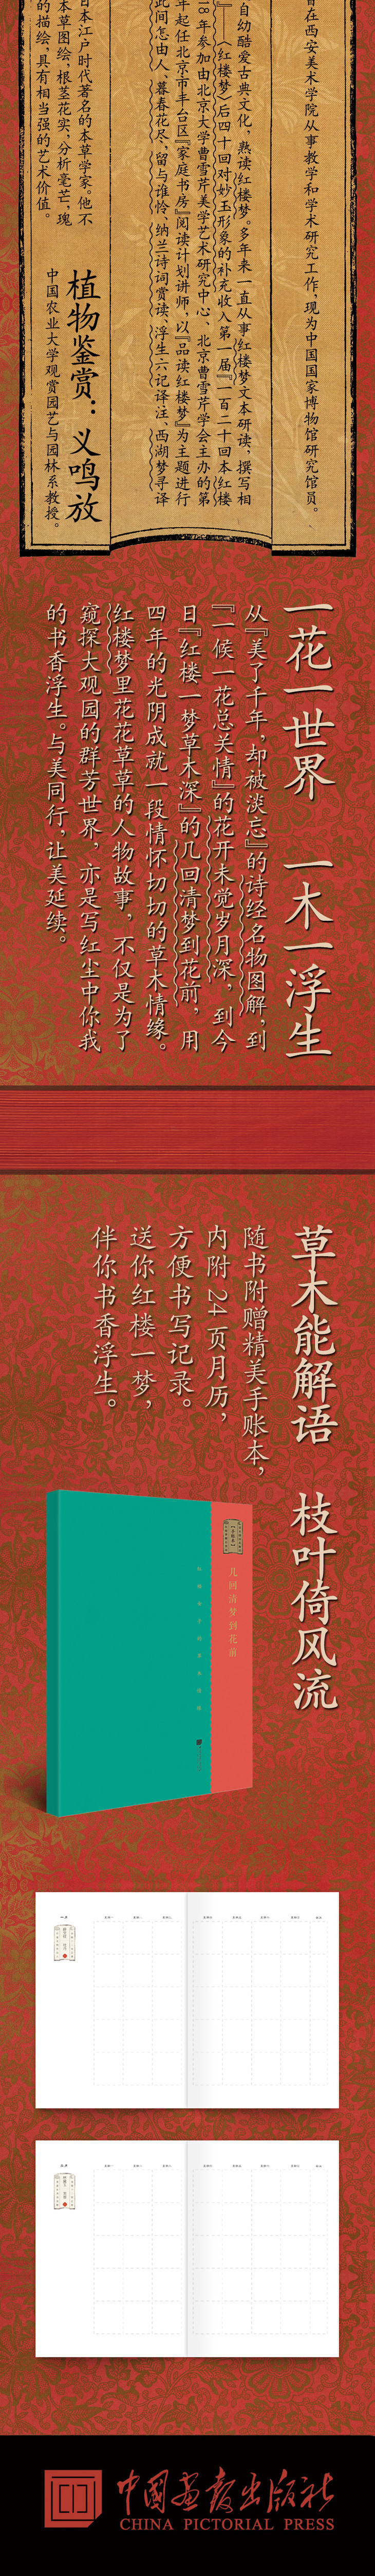 曾在西安美术学院从事教学和学术研究工作,现为中国国家博物馆研究馆员。
自幼酷爱古典文化,熟读红楼梦。多年来一直从事红楼梦文本研读,撰写相
』——〈红楼梦〉后四十回对妙玉形象的补充收入第一届『一百二十回本红楼
18年参加由北京大学曹雪芹美学艺术研究中心、北京曹雪芹学会主办的第
年起任北京市丰台区『家庭书房』阅读计划讲师,以『品读红楼梦』为主题进行
此间怎由人、暮春花尽,留与谁怜、纳兰诗词赏读、浮生六记译注、西湖梦寻译
日本江户时代著名的本草学家。他不
本草图绘,根茎花实,分析毫芒,瑰
的描绘,具有相当强的艺术价值。
植物鉴赏:义鸣放
中国农业大学观赏园艺与园林系教授。
一花一世界 一木一浮生
从『美了千年,却被淡忘』的诗经名物图解,到
『一候一花总关情』的花开未觉岁月深,到今
日『红楼一梦草木深』的几回清梦到花前,用
四年的光阴成就一段情怀切切的草木情缘。
红楼梦里花花草草的人物故事,不仅是为了
窥探大观园的群芳世界,亦是写红尘中你我
的书香浮生。与美同行,让美延续。
草木能解语 枝叶倚风流
随书附赠精美手账本,
内附24页月历,
方便书写记录。
送你红楼一梦,
伴你书香浮生。
几回清梦到花前
中国画报出版社
CHINA PICTORIAL PRESS